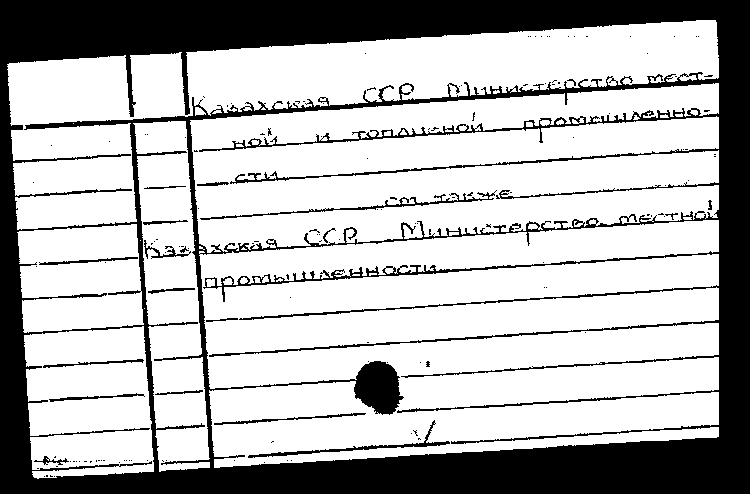 Казахская ССР. Министерство мест-
ной и топливной промышленно-
сти
см. также
Казахская ССР. Министерство местной
промышленности